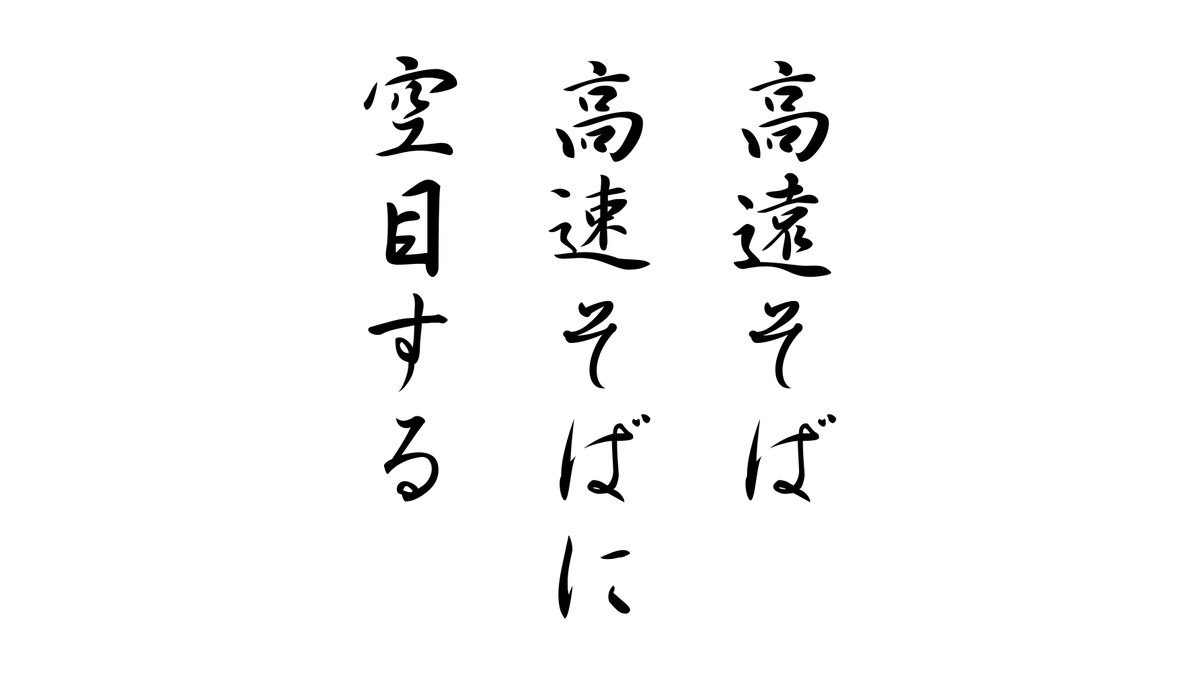 高遠そば
高速そばに
空目する